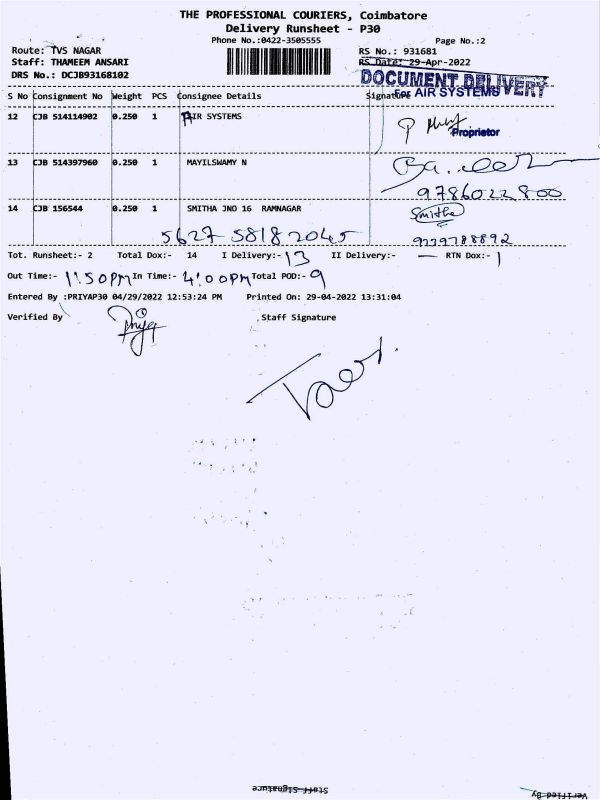 THE PROFESSIONAL COURIERS, Coimbatore
Delivery Runsheet - P30
Phone No.:0422-3505555 Page No.:2
Route: TVS NAGAR RS No.: 931681
Staff: THAMEEM ANSARI RS Date: 29-Apr-2022
DRS No.: DCJB93168102 DOCUMENT DELIVERY
S No Consignment No Weight PCS Consignee Details Signature For AIR SYSTEMS
12 CJB 514114902 0.250 1 AIR SYSTEMS
Proprietor
13 CJB 514397960 0.250 1 MAYILSWAMY N
9786022800
14 CJB 156544 0.250 1 SMITHA JNO 16 RAMNAGAR Smitha
5627 5818 2045 9239788892
Tot. Runsheet:- 2 Total Dox:- 14 I Delivery:- 13 II Delivery:- — RTN Dox:- 1
Out Time:- 1:50PM In Time:- 4:00PM Total POD:- 9
Entered By :PRIYAP30 04/29/2022 12:53:24 PM Printed On: 29-04-2022 13:31:04
Verified By Priya Staff Signature
Staff Signature Verified By